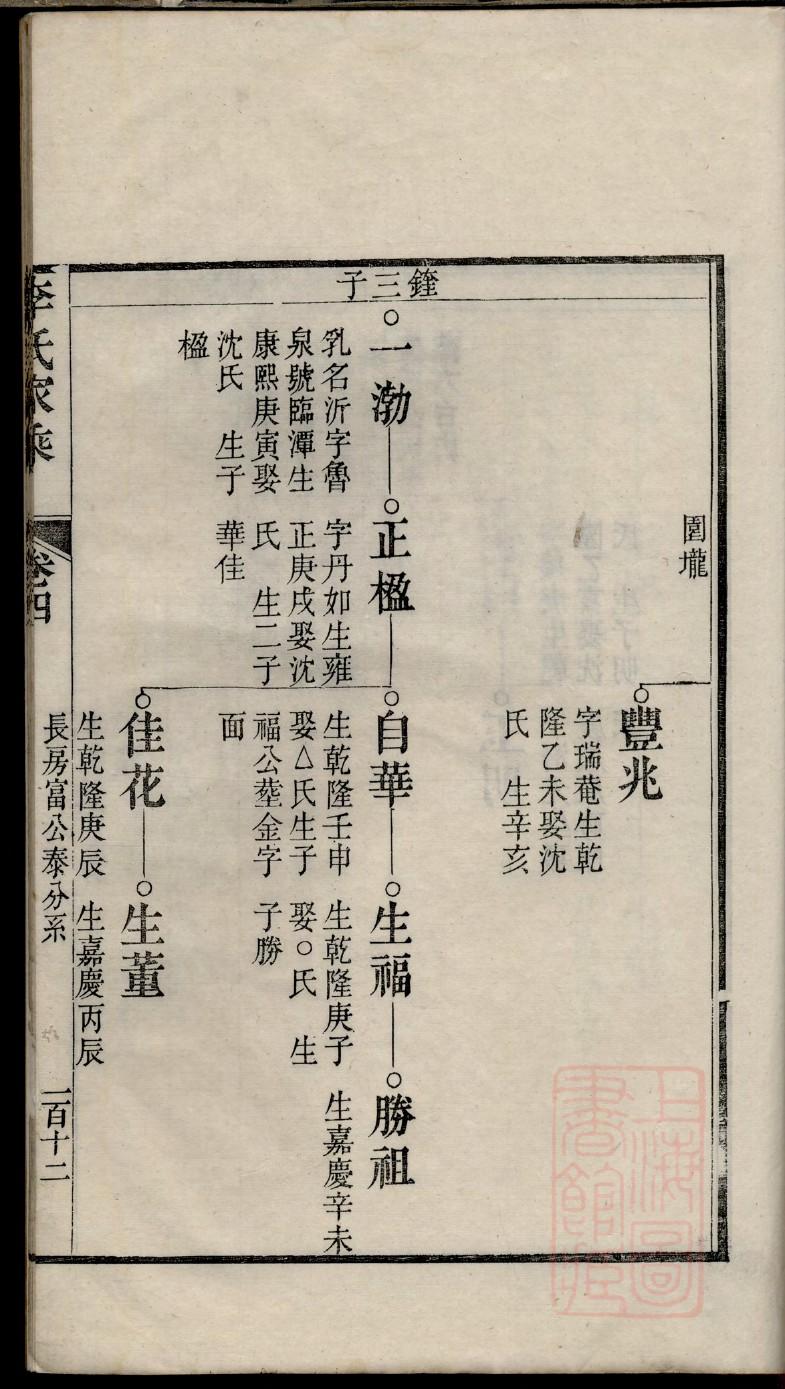 鍷三子
園壠
豐兆
字瑞菴生乾
隆乙未娶沈
氏　生辛亥
一渤
乳名沂字魯
泉號臨潭生
康熙庚寅娶
沈氏　生子
楹
正楹
字丹如生雍
正庚戌娶沈
氏　生二子
華佳
自華
生乾隆壬申
娶△氏生子
福公塟金字
面
生福
生乾隆庚子
娶○氏　生
子勝
勝祖
生嘉慶辛未
佳花
生乾隆庚辰
生董
生嘉慶丙辰
李氏家乘
卷四
長房富公泰分系
一百十二
上海圖
書館藏